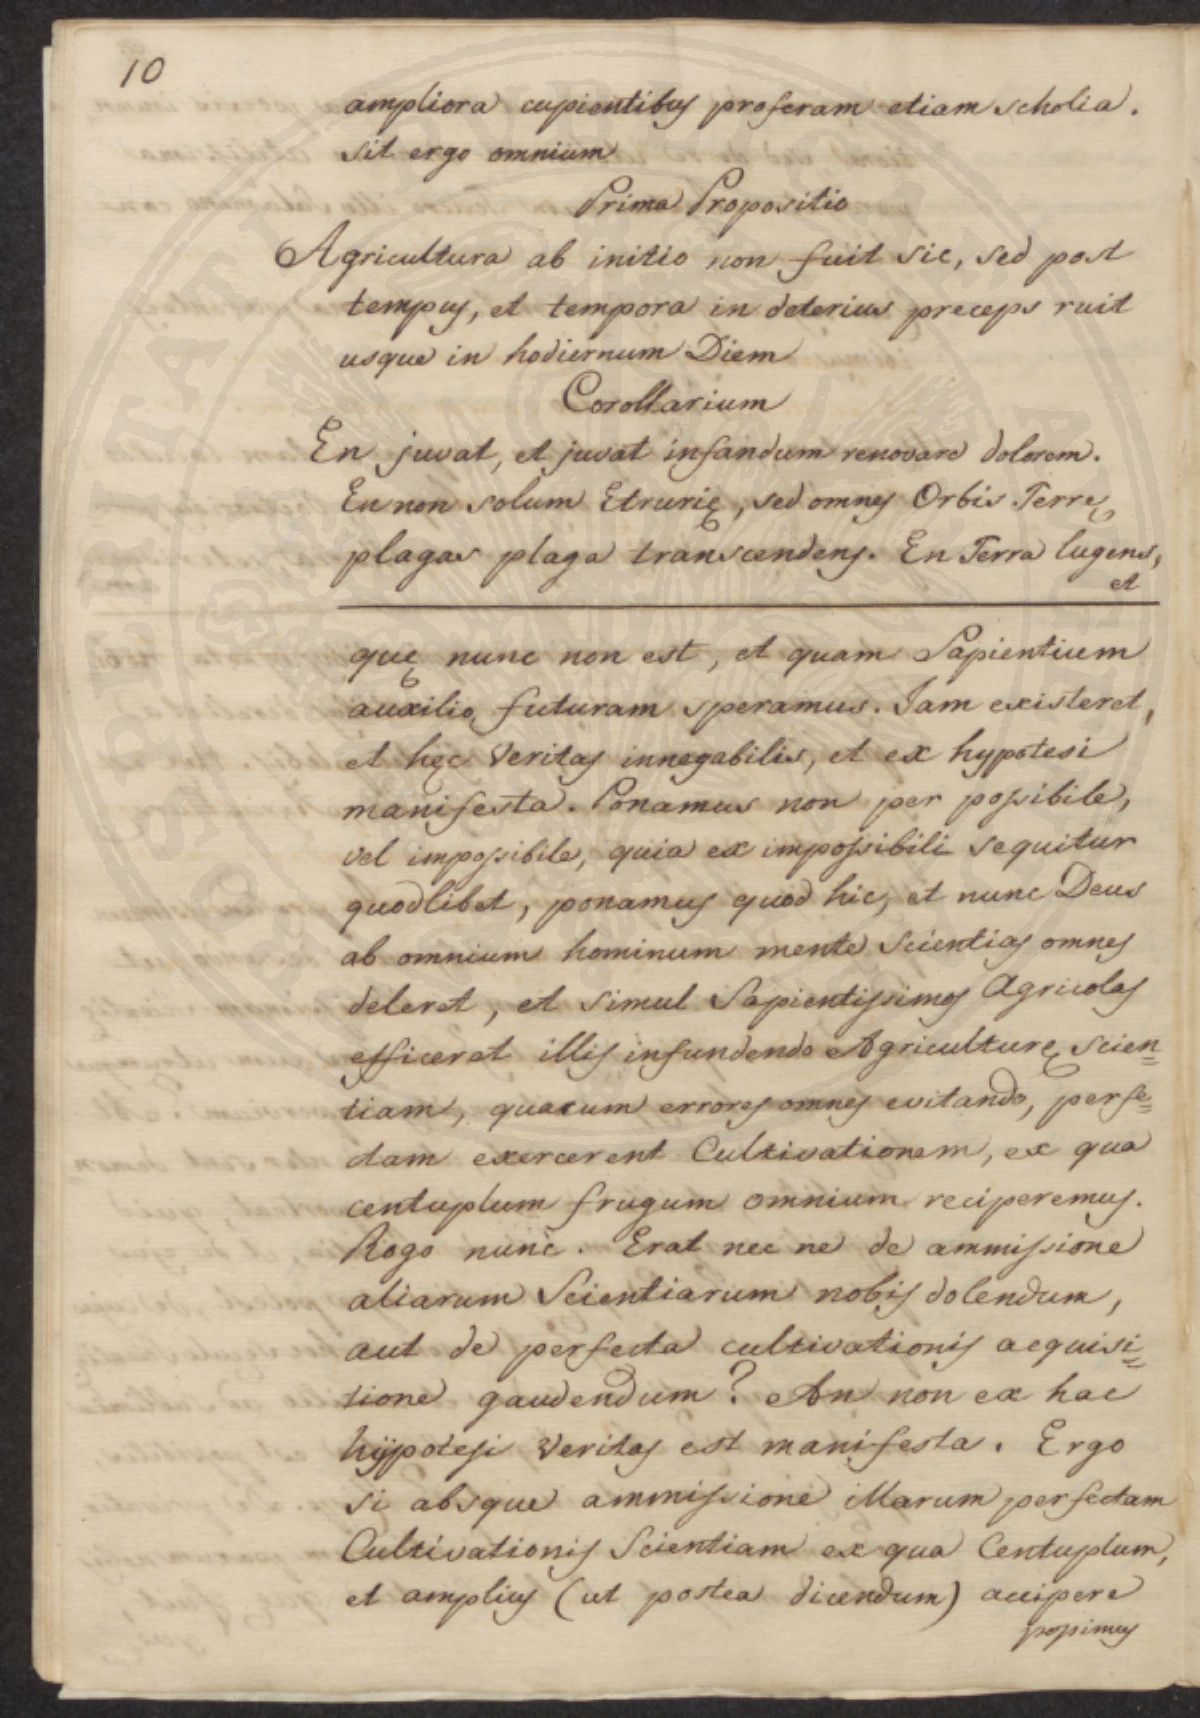 10
ampliora cupientibus proferam etiam scholia.
sit ergo omnium
Prima Propositio
Agricultura ab initio non fuit sic, sed post
tempus, et tempora in deterius preceps ruit
usque in hodiernum Diem
Corollarium
En juvat, et juvat infandum renovare dolorem.
En non solum Etrurię, sed omnes Orbis Terrę
plagas plaga transcendens. En Terra lugens,
et
quę nunc non est, et quam Sapientium
auxilio futuram speramus. Jam existeret,
et hęc Veritas innegabilis, et ex hypotesi
manifesta. Ponamus non per possibile,
vel impossibile, quia ex impossibili sequitur
quodlibet, ponamus quod hic, et nunc Deus
ab omnium hominum mente Scientias omnes
deleret, et simul Sapientissimos Agricolas
efficeret illis infundendo Agriculturę scien=
tiam, quacum errores omnes evitando, perfe=
ctam exercerent Cultivationem, ex qua
centuplum frugum omnium reciperemus.
Rogo nunc. Erat nec ne de ammissione
aliarum Scientiarum nobis dolendum,
aut de perfecta cultivationis acquisi=
tione gaudendum? An non ex hac
hÿpotesi Veritas est manifesta. Ergo
si absque ammissione illarum perfectam
Cultivationis Scientiam ex qua Centuplum,
et amplius (ut postea dicendum) accipere
possimus
PROSPERITATI PUBLICAE